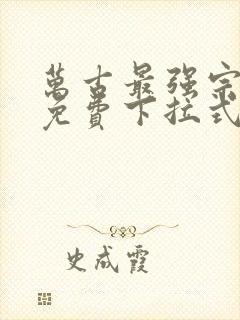 萬古最强宗
免費下拉式
史成霞